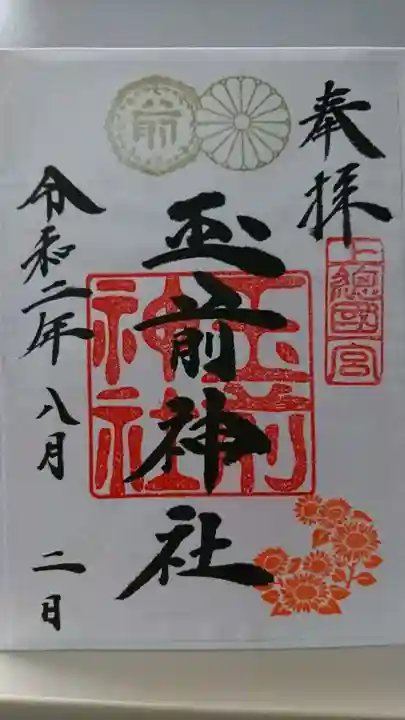 奉拝
上總國一宮
玉前神社
玉前
神社
前
令和二年八月二日